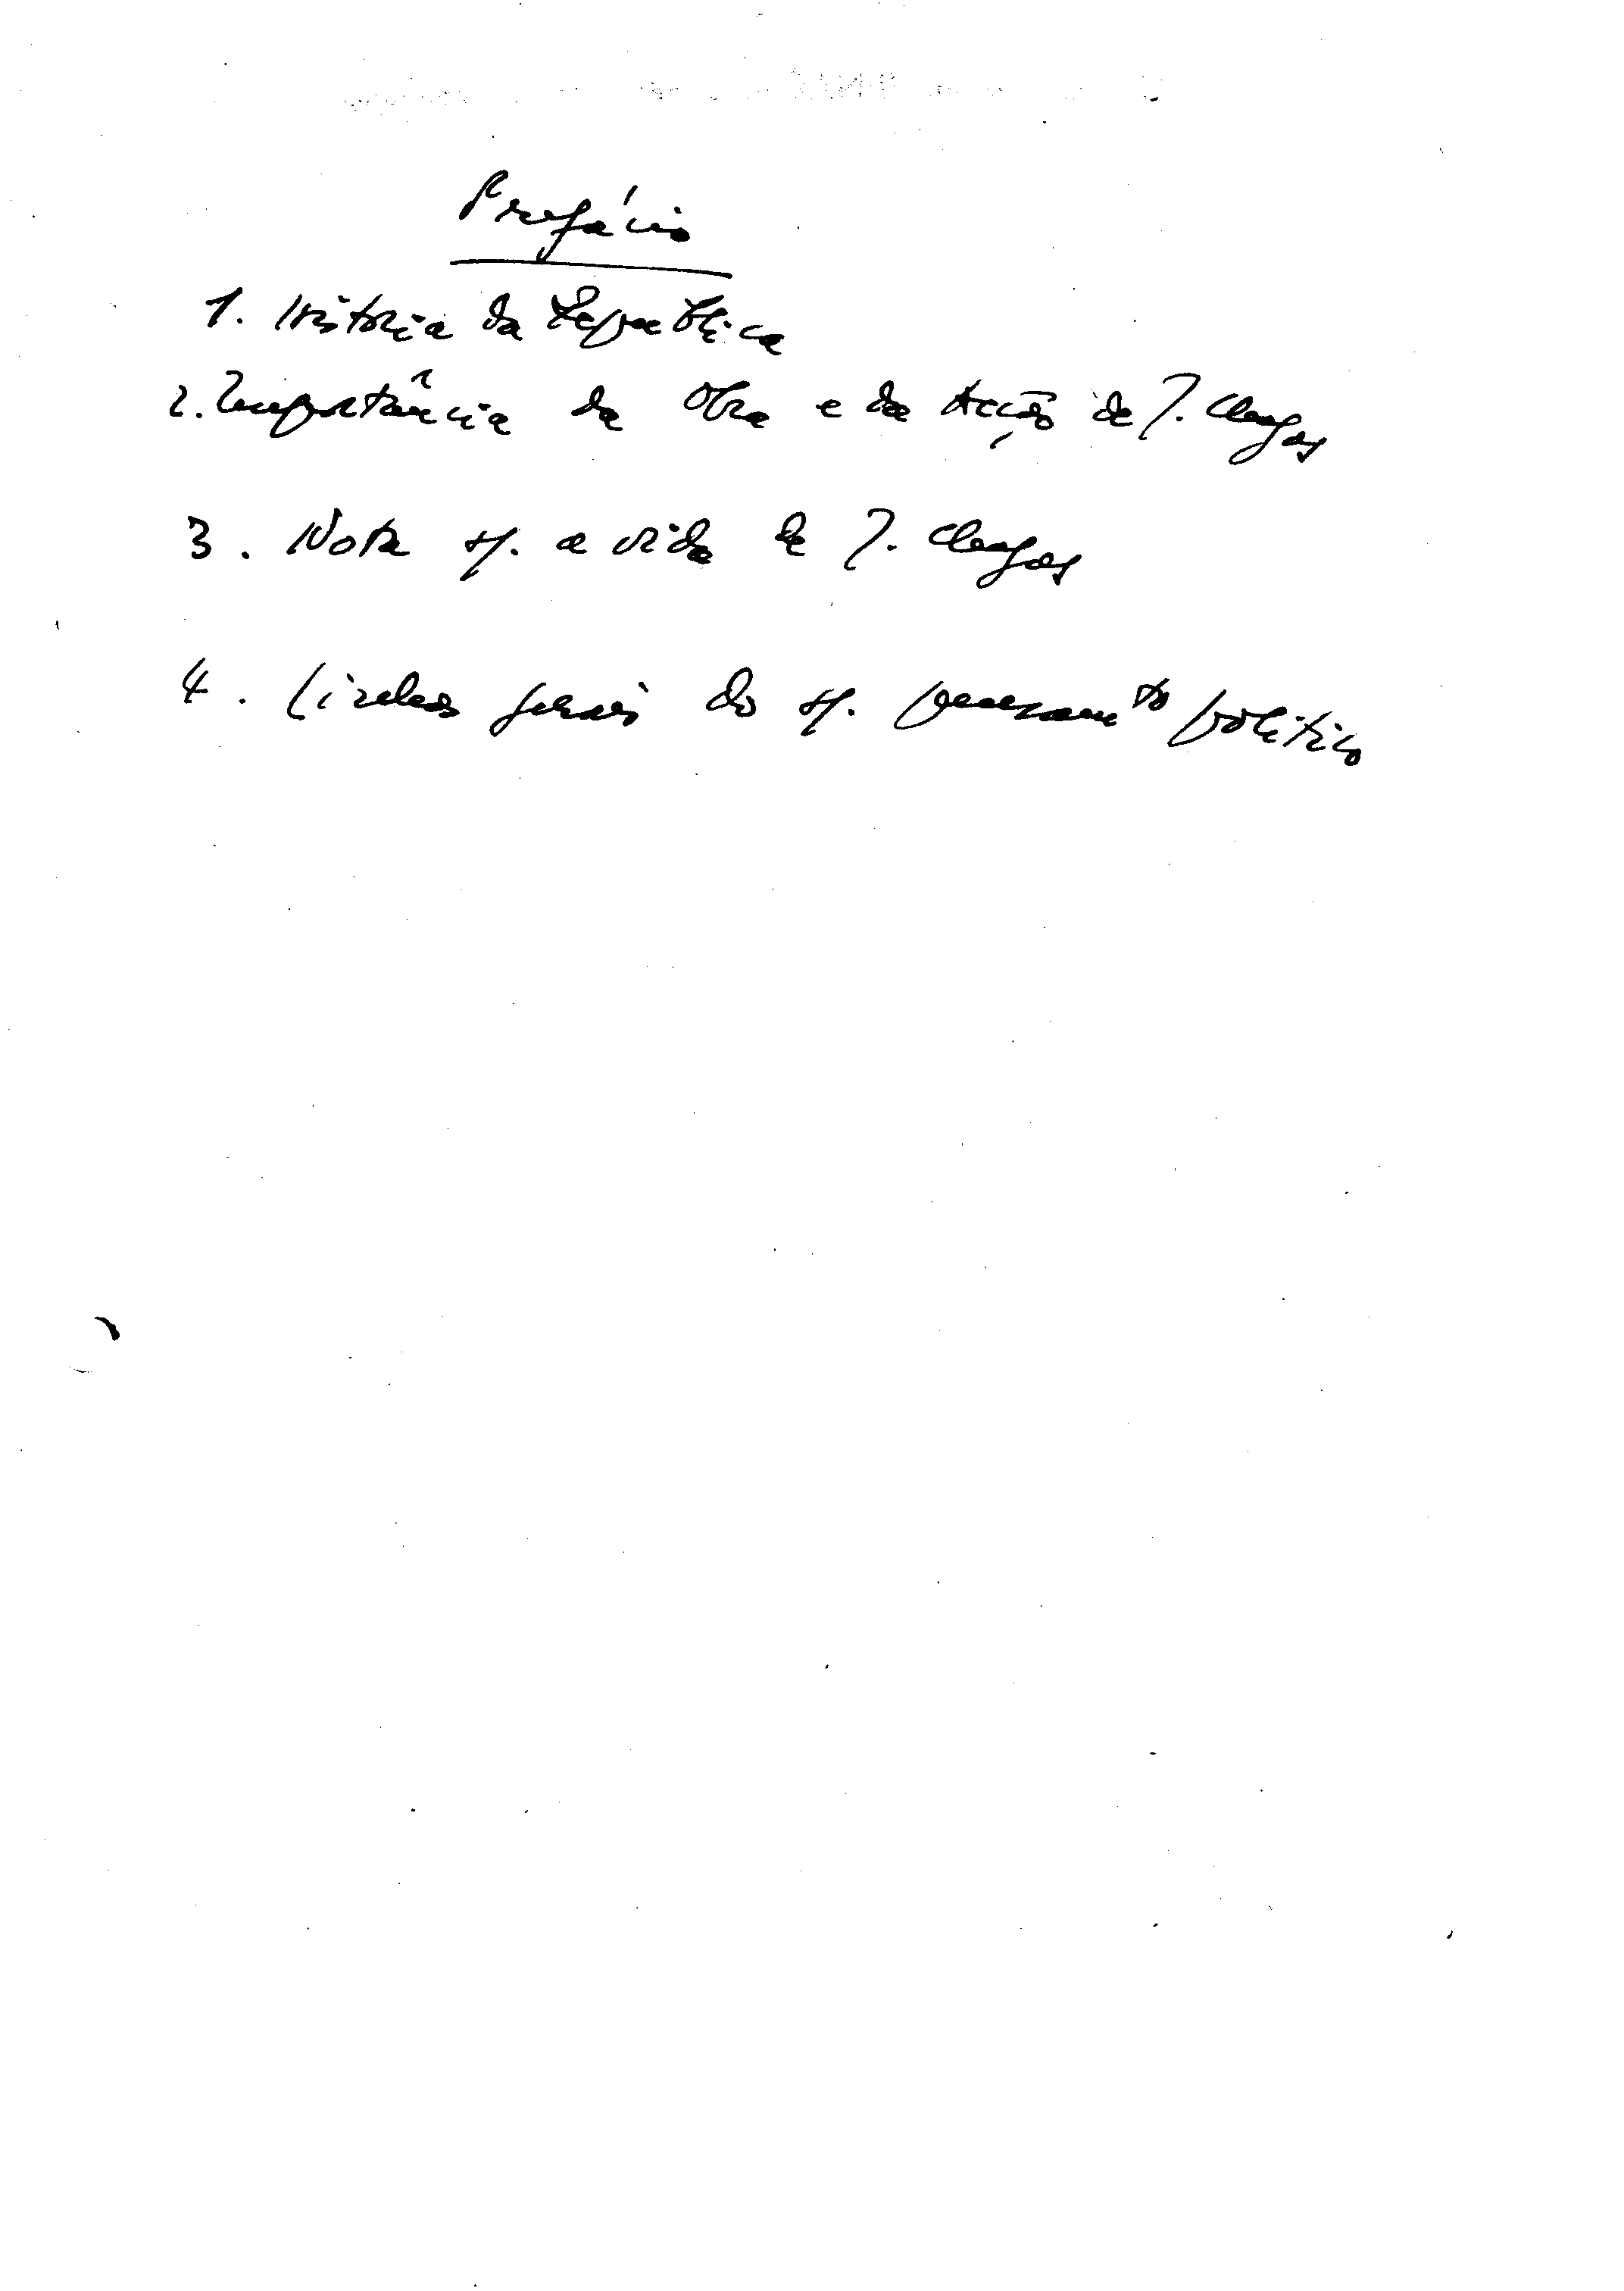 Prefácio
1. História da República
2. Importância da Obra e da Acção de J. Chagas
3. Nota sp. a vida de J. Chagas
4. Linhas gerais do sp. pensamto político